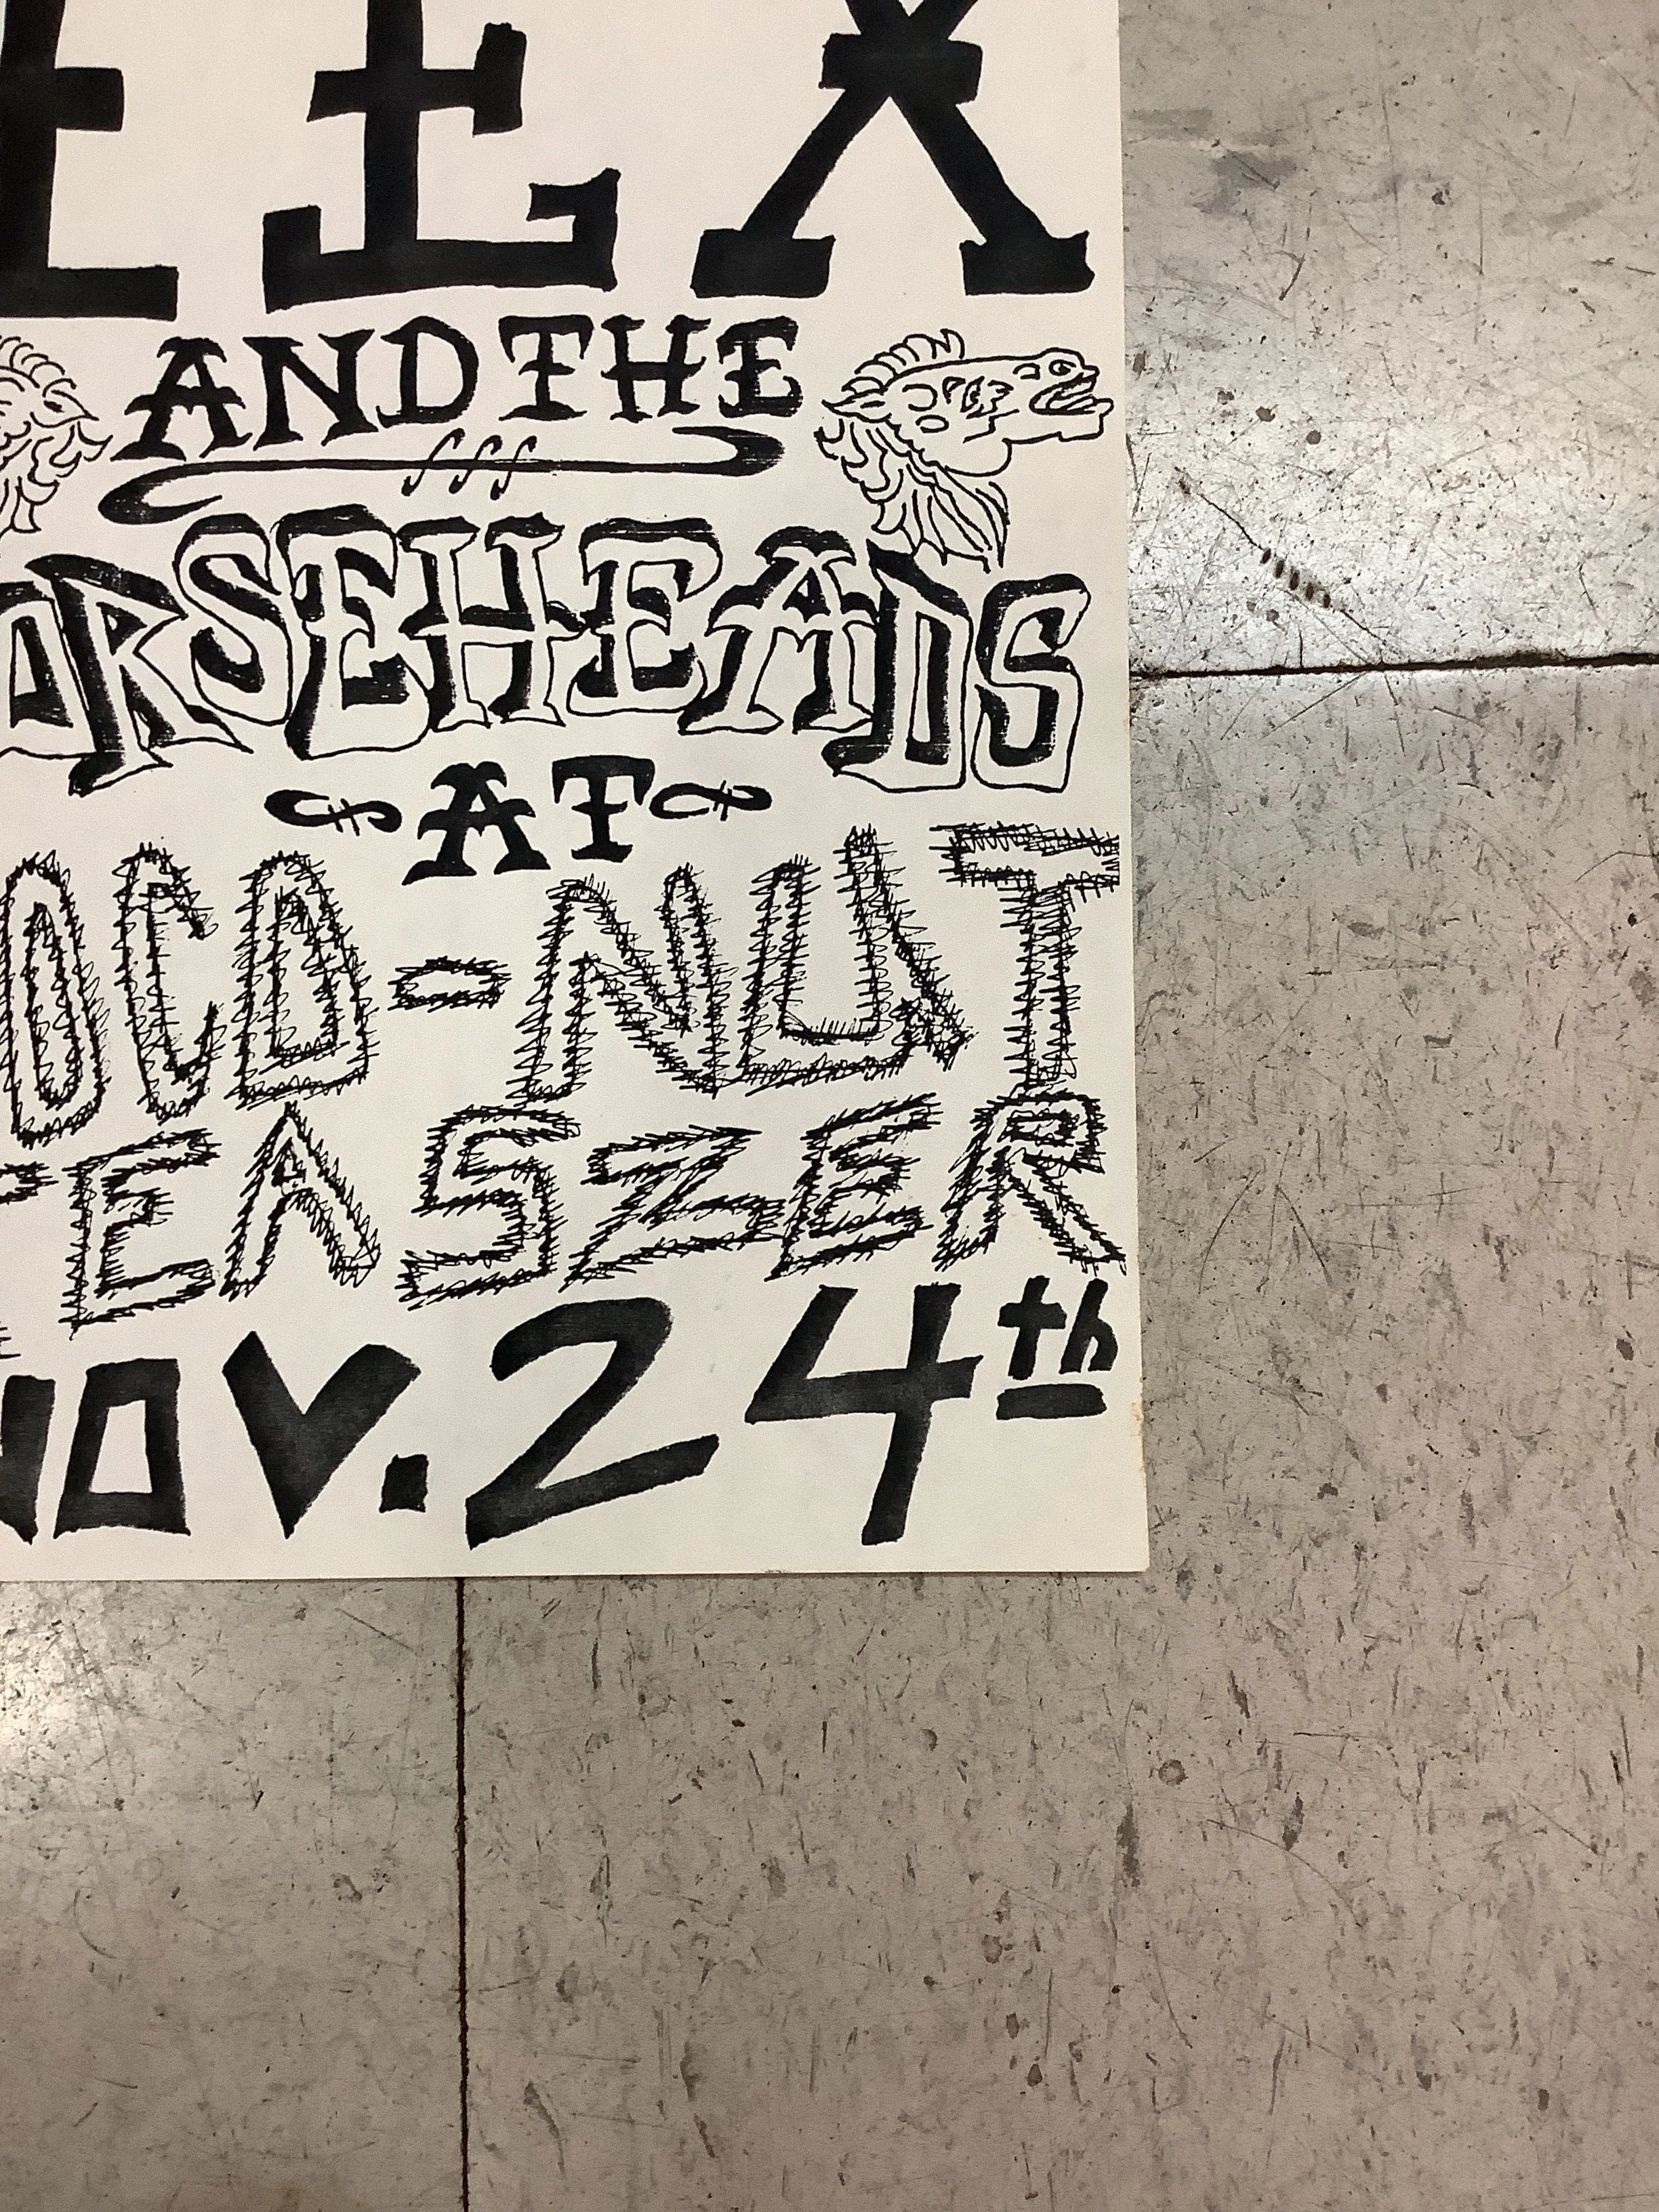 EX
AND THE
ORSEHEADS
AT
OCO-NUT
TEASZER
NOV. 24th